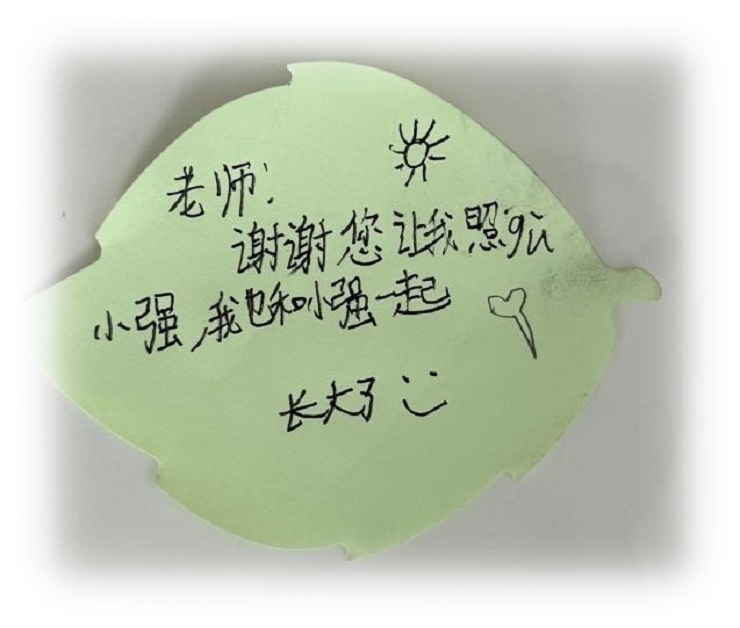 老师:
谢谢您让我照gu
小强,我也和小强一起
长大了